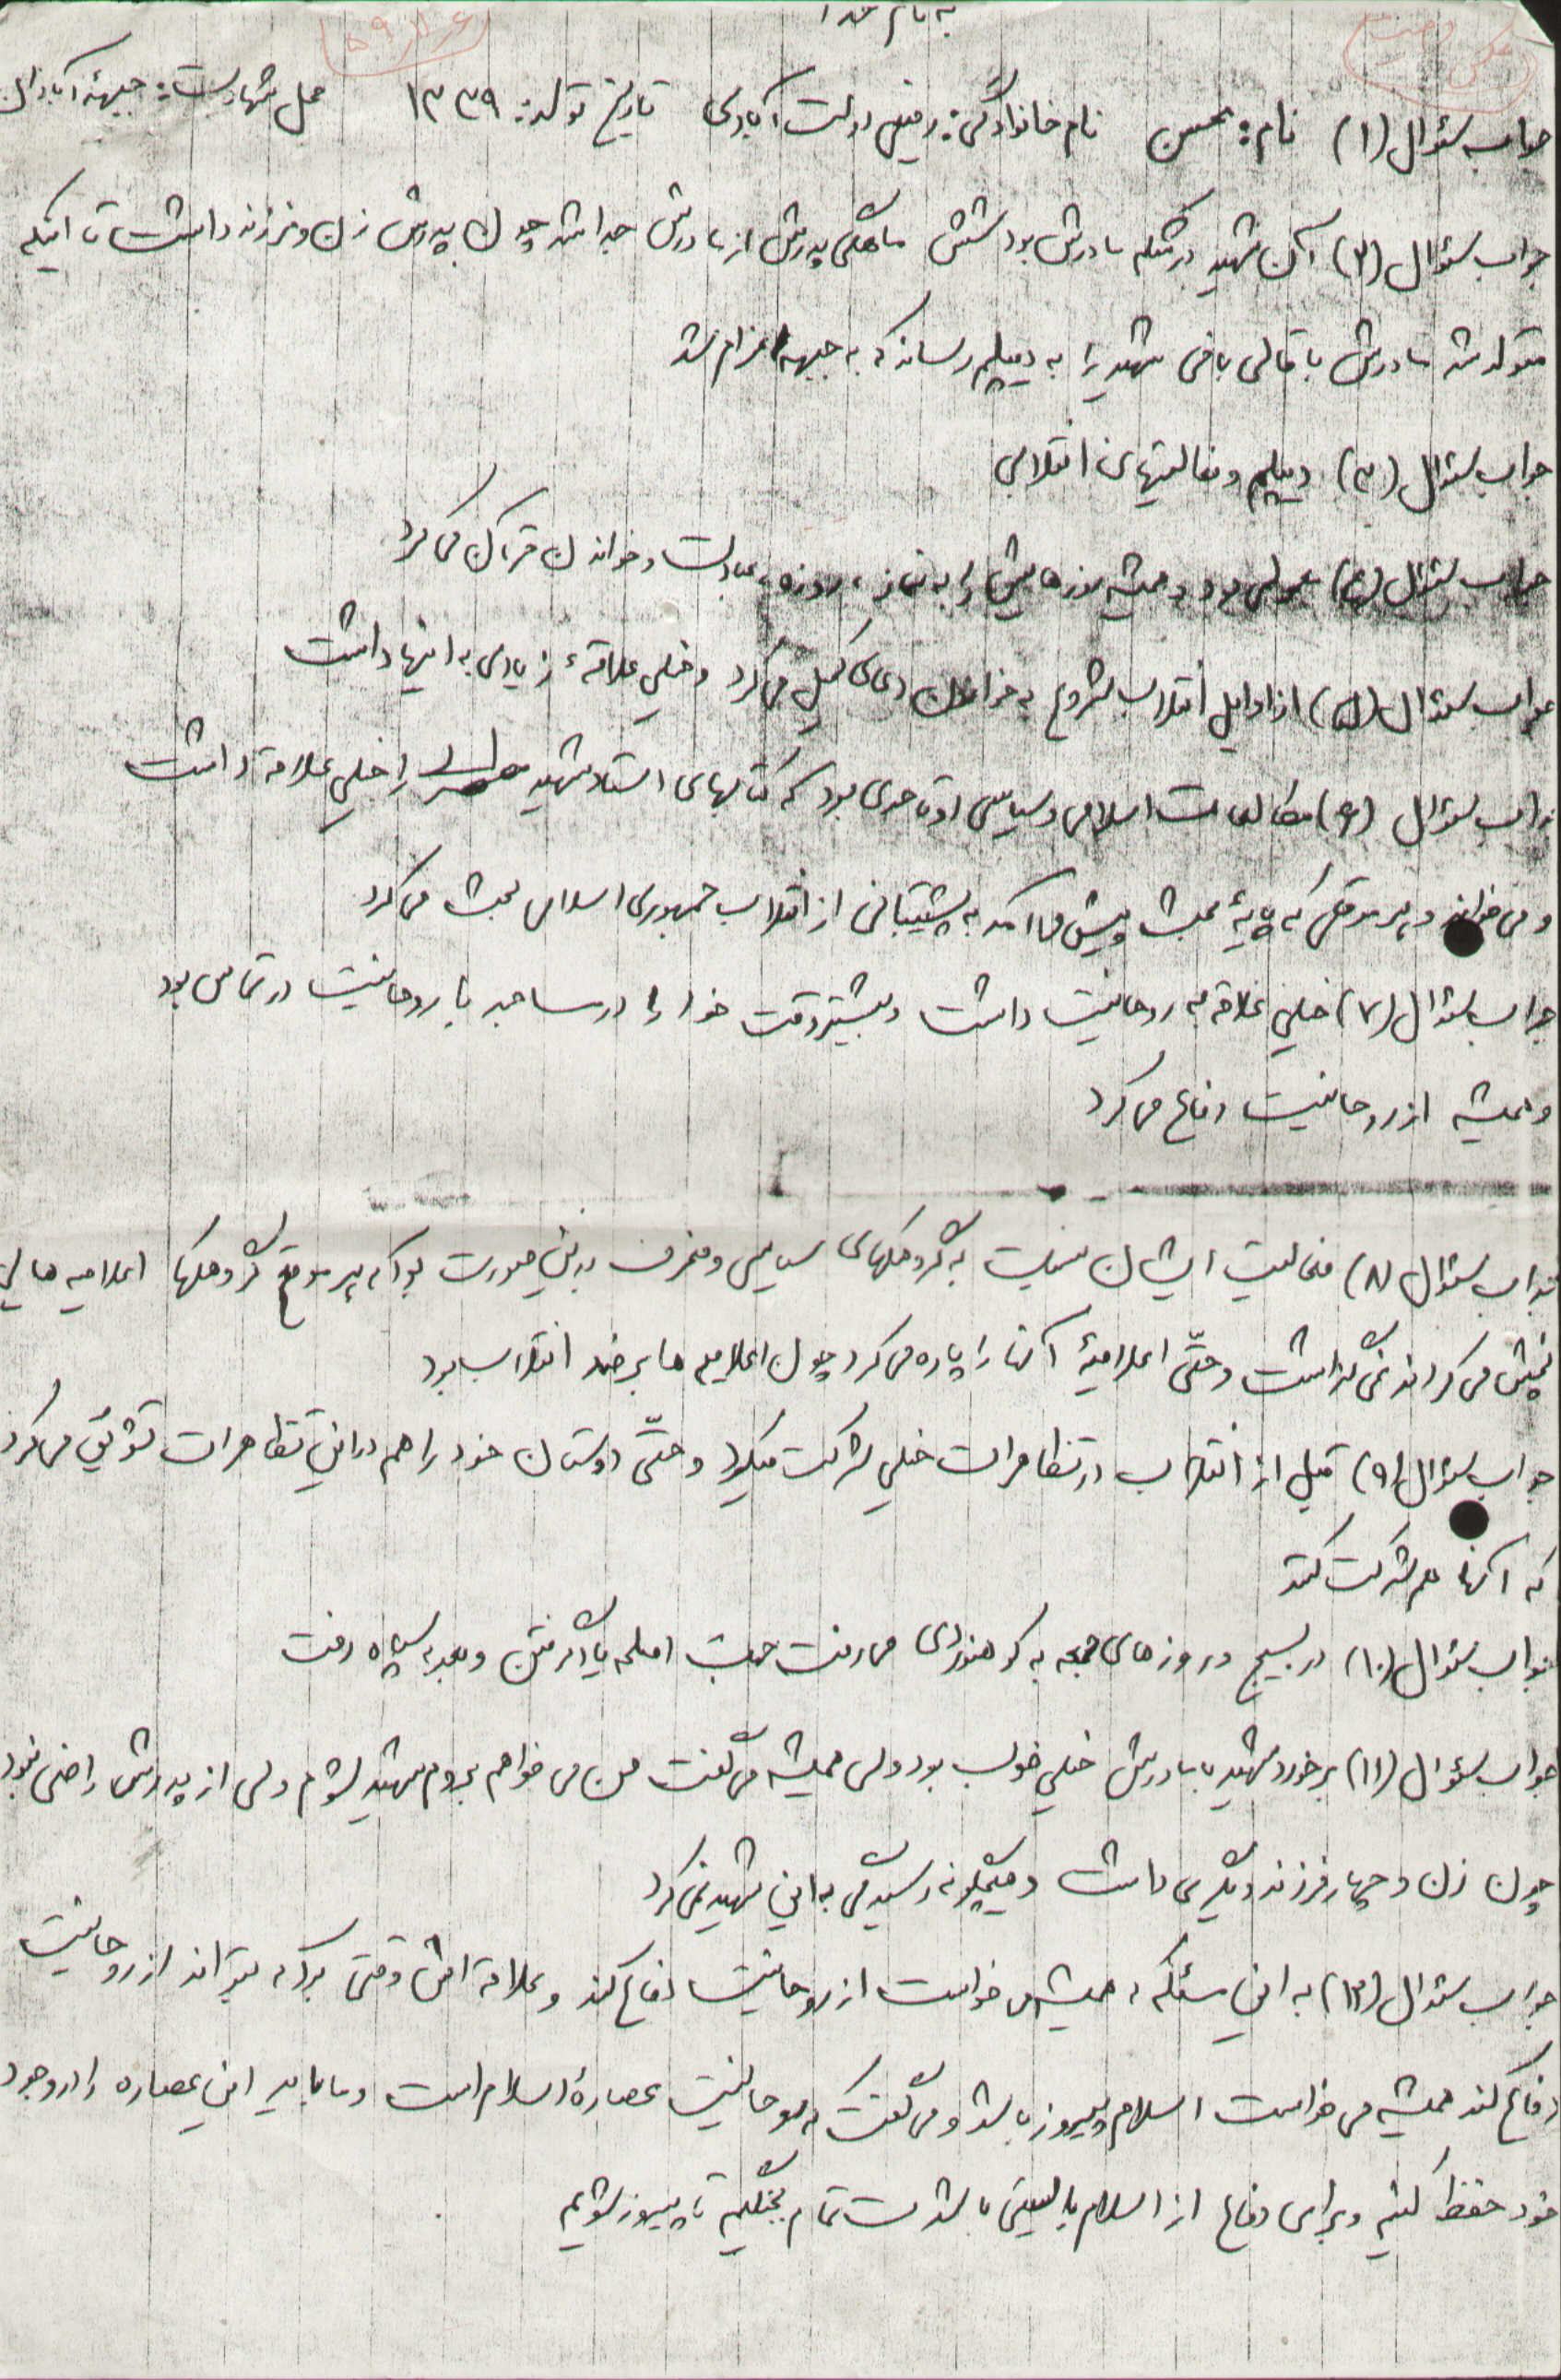 به نام خدا
جواب سئوال (۱) نام: محسن نام خانوادگی: رفیعی دولت آبادی تاریخ تولد: ۱۳۳۹ محل شهادت: جبههٔ آبادان
جواب سئوال (۲) آن شهید در شکم مادرش بود شش ماهگی پدرش از مادرش جدا شد چون پدرش زن و فرزند داشت تا اینکه
متولد شد مادرش با قالی بافی شهید را به دیپلم رساند که به جبهه اعزام شد
جواب سئوال (۳) دیپلم و فعالیتهای انقلابی
جواب سئوال (۴) بود و همیشه روزهایش را به نماز، روزه، عبادت و خواندن قرآن می کرد
جواب سئوال (۵) از اوایل انقلاب شروع به خواندن دعای کمیل می کرد و خیلی علاقهٔ زیادی به اینها داشت
جواب سئوال (۶) مطالعات اسلامی و سیاسی او تا حدی بود که کتابهای استاد شهید مطهری را خیلی علاقه داشت
و می خواند و هر موقعی که پایهٔ بحث پیش می آمد به پشتیبانی از انقلاب جمهوری اسلامی بحث می کرد
جواب سئوال (۷) خیلی علاقه به روحانیت داشت و بیشتر وقت خود را در مساجد با روحانیت در تماس بود
و همیشه از روحانیت دفاع می کرد
جواب سئوال (۸) فعالیت ایشان نسبت به گروهکهای سیاسی و منحرف بدین صورت بود که هر موقع گروهکها اعلامیه هایی
پخش می کردند نمی گذاشت و حتّی اعلامیهٔ آنها را پاره می کرد چون اعلامیه ها بر ضد انقلاب بود
جواب سئوال (۹) قبل از انقلاب در تظاهرات خیلی شرکت میکرد و حتّی دوستان خود را هم در این تظاهرات تشویق می کرد
که آنها هم شرکت کنند
جواب سئوال (۱۰) در بسیج و روزهای جمعه به کوهنوردی می رفت جهت اسلحه یاد گرفتن و بعد به سپاه رفت
جواب سئوال (۱۱) برخورد شهید با مادرش خیلی خوب بود ولی همیشه می گفت من می خواهم بروم شهید بشوم ولی از پدرش راضی نبود
چون زن و چهار فرزند دیگری داشت و هیچگونه رسیدگی به این شهید نمی کرد
جواب سئوال (۱۲) به این مسئله که همیشه می خواست از روحانیت دفاع کند و علاقه اش وقتی بود که بتواند از روحانیت
دفاع کند همیشه می خواست اسلام پیروز باشد و می گفت که روحانیت عصارهٔ اسلام است و ما باید این عصاره را در وجود
خود حفظ کنیم و برای دفاع از اسلام بایستی با شدت تمام بجنگیم تا پیروز شویم